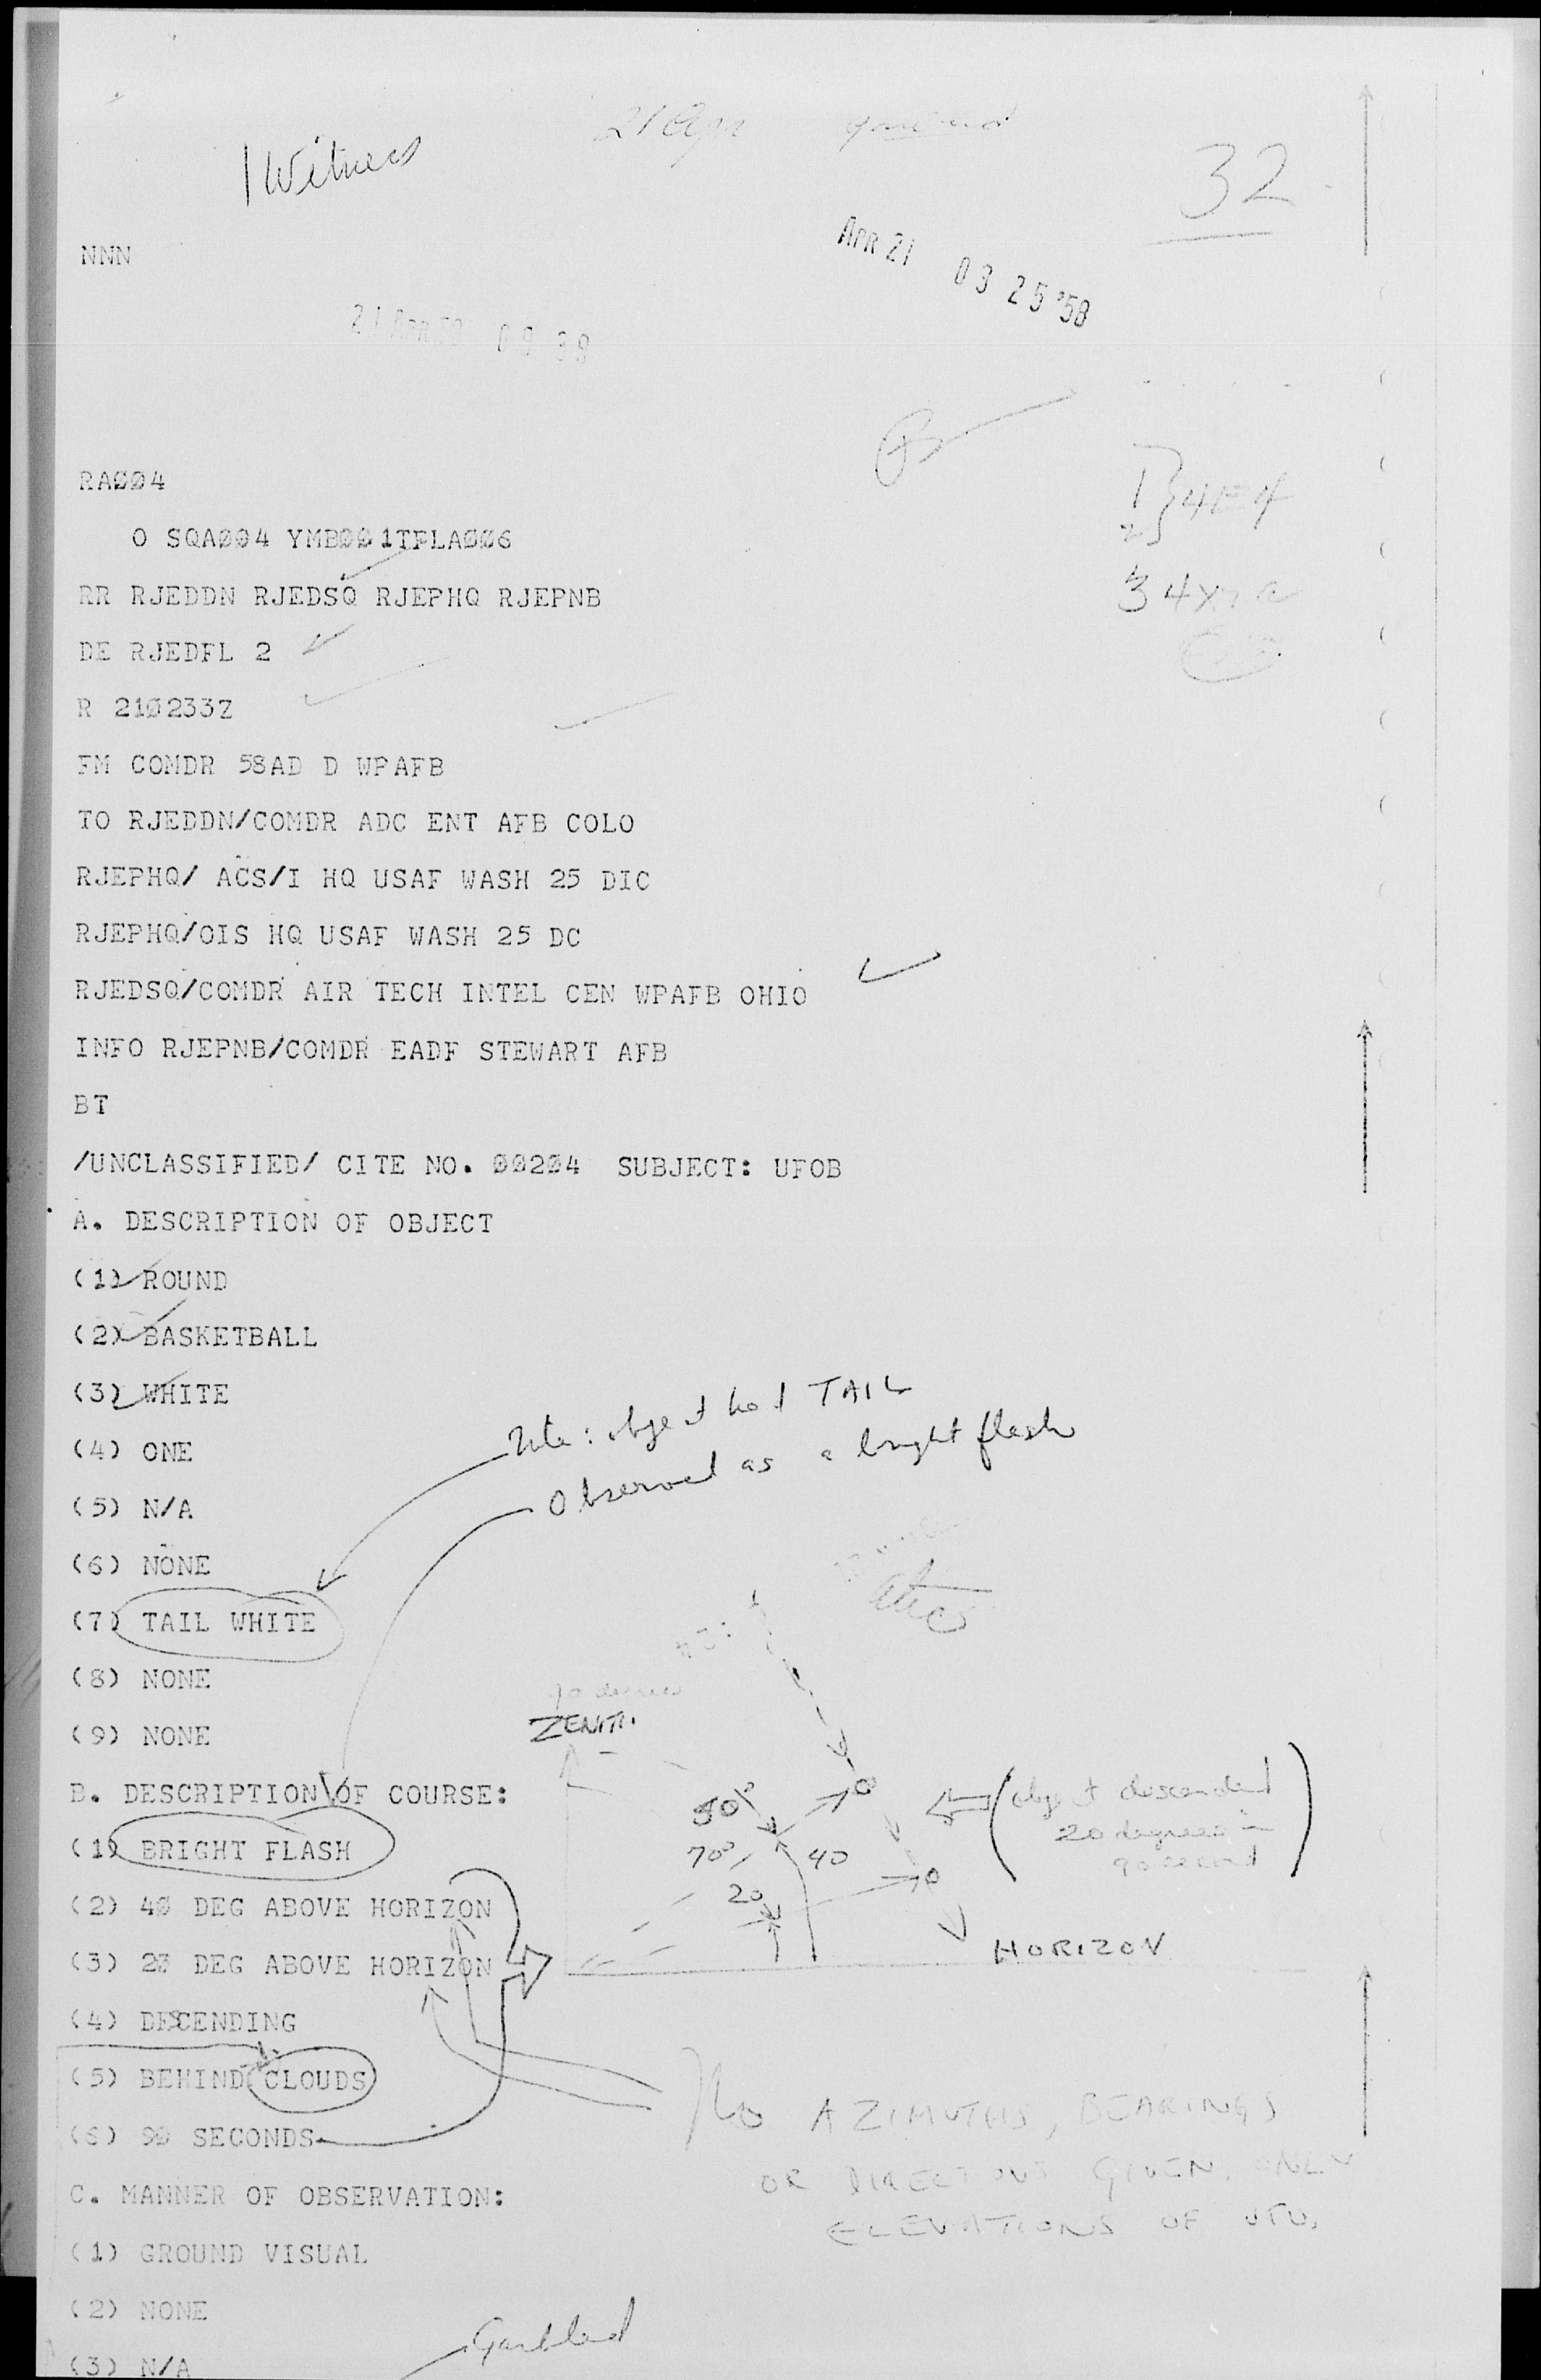 21 Apr
1 Witness
32
NNN
APR 21 03 25 '58
21 APR 58 09 39
RA004
O SQA004 YMB001TFLA006
4E4
RR RJEDDN RJEDSQ RJEPHQ RJEPNB
3 4X
DE RJEDFL 2
R 210233Z
FM COMDR 58AD D WPAFB
TO RJEDDN/COMDR ADC ENT AFB COLO
RJEPHQ/ ACS/I HQ USAF WASH 25 DIC
RJEPHQ/OIS HQ USAF WASH 25 DC
RJEDSQ/COMDR AIR TECH INTEL CEN WPAFB OHIO
INFO RJEPNB/COMDR EADF STEWART AFB
BT
/UNCLASSIFIED/ CITE NO. 00204 SUBJECT: UFOB
A. DESCRIPTION OF OBJECT
(1) ROUND
(2) BASKETBALL
(3) WHITE
Note: object had TAIL
(4) ONE
Observed as a bright flash
(5) N/A
(6) NONE
(7) TAIL WHITE
(8) NONE
90 degrees
ZENITH
(9) NONE
B. DESCRIPTION OF COURSE:
50°
object descended
20 degrees in
90 second
(1) BRIGHT FLASH
70°
40
20
(2) 40 DEG ABOVE HORIZON
(3) 20 DEG ABOVE HORIZON
HORIZON
(4) DESCENDING
(5) BEHIND CLOUDS
(6) 90 SECONDS
No AZIMUTHS, BEARINGS
OR DIRECTIONS GIVEN, ONLY
ELEVATIONS OF
C. MANNER OF OBSERVATION:
(1) GROUND VISUAL
(2) NONE
Garbled
(3) N/A